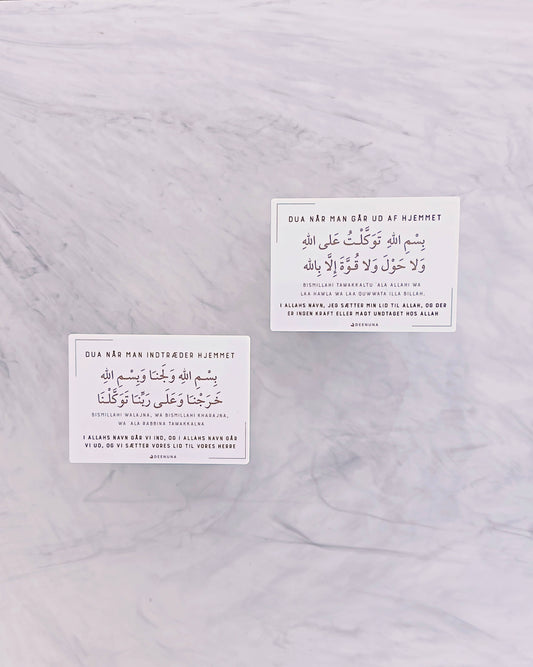 DUA NÅR MAN GÅR UD AF HJEMMET
بِسْمِ اللهِ تَوَكَّلْتُ عَلى اللهِ
وَلا حَوْلَ وَلا قُوَّةَ إِلَّا بِالله
BISMILLAHI TAWAKKALTU ALA ALLAHI WA
LAA HAWLA WA LAA QUWWATA ILLA BILLAH.
I ALLAHS NAVN, JEG SÆTTER MIN LID TIL ALLAH, OG DER
ER INGEN KRAFT ELLER MAGT UNDTAGET HOS ALLAH
DEENUNA
DUA NÅR MAN INDTRÆDER HJEMMET
بِسْمِ اللهِ وَلَجْنَا وَبِسْمِ اللهِ
خَرَجْنَا وَعَلَى رَبِّنَا تَوَكَّلْنَا
BISMILLAHI WALAJNA, WA BISMILLAHI KHARAJNA,
WA ALA RABBINA TAWAKKALNA
I ALLAHS NAVN GÅR VI IND, OG I ALLAHS NAVN GÅR
VI UD, OG VI SÆTTER VORES LID TIL VORES HERRE
DEENUNA